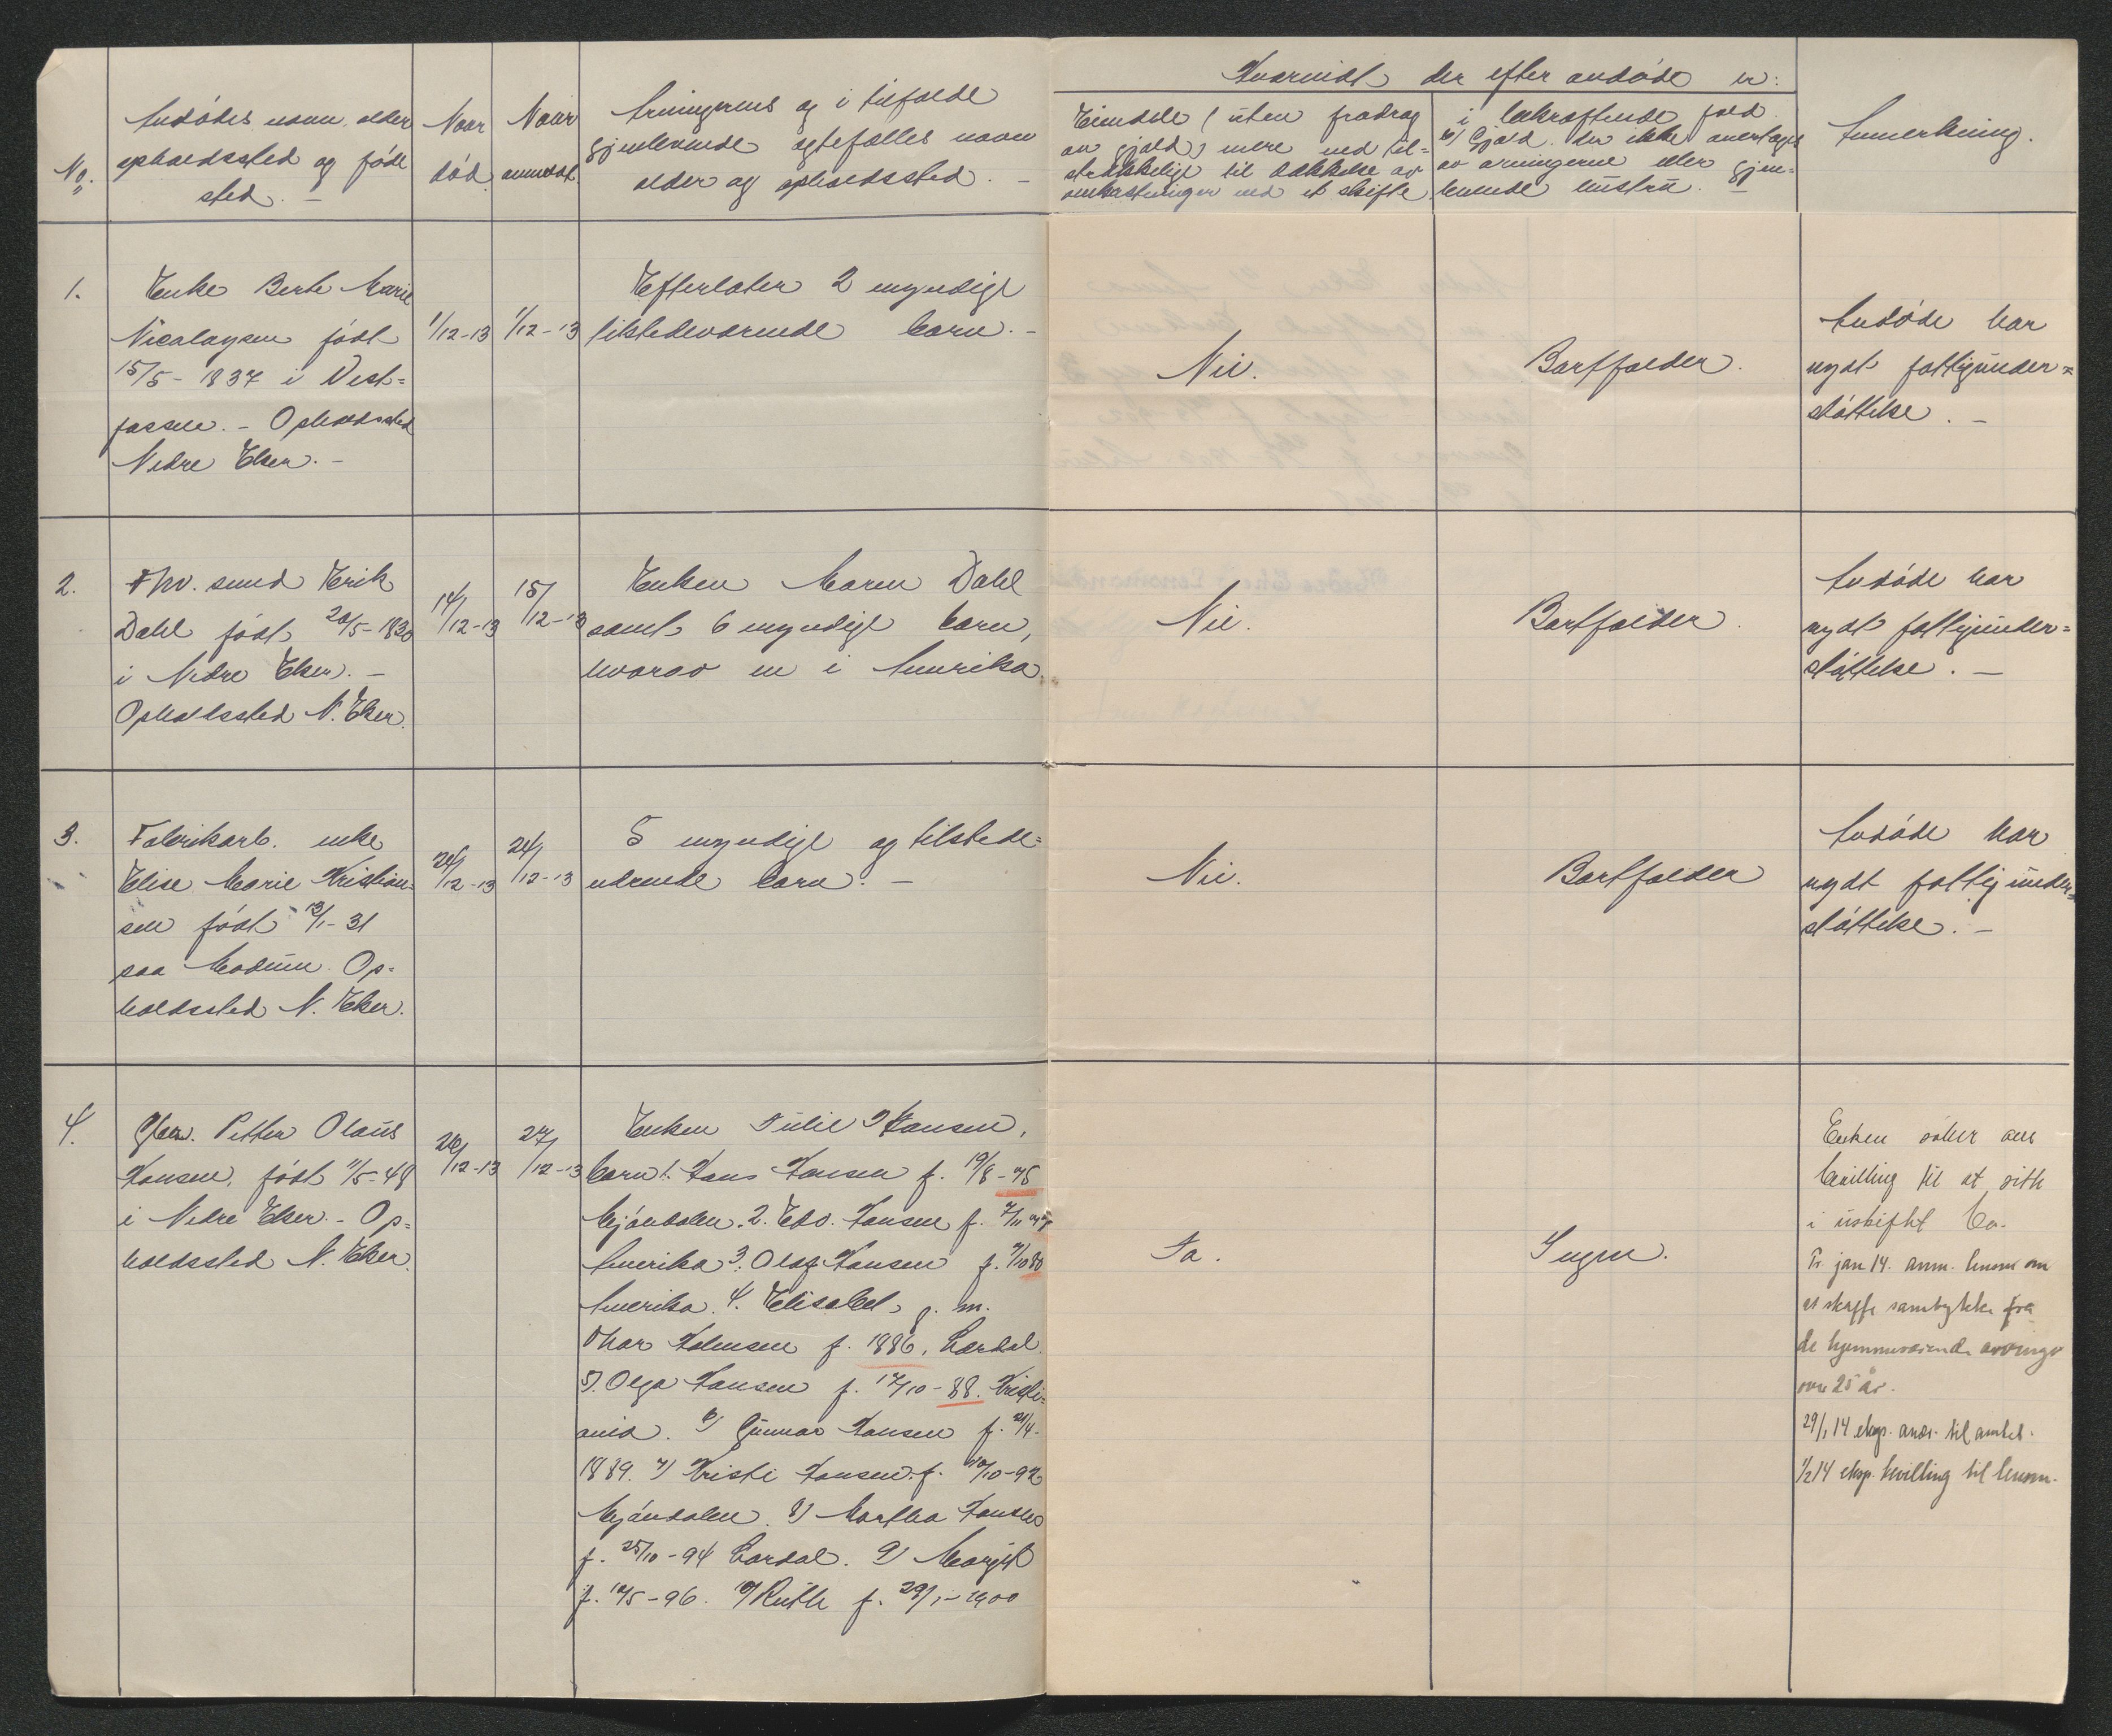 No.
Avdødes navn, alder
opholdssted og føde
sted. –
Naar
død.
Naar
anmeldt.
Arvingernes og i tilfælde
gjenlevende egtefælles navn
alder og opholdssted. –
Hvorvidt der efter avdøde er:
Eiendele (uten fradrag
av gjæld) mere end til-
strækkelige til dækkelse av
omkostninger ved et skifte
i bekræftende fald
gjæld, der ikke overtages
av arvingerne eller gjen-
levende enstru. –
Anmerkning.
1.
Enke Berte Marie
Nicolaysen født
15/5 - 1837 i Vest=
fossen. – Opholdssted
Nedre Eker. –
1/12-13
1/12-13
Efterlater 2 myndige
tilstedeværende barn. –
Nei.
Bortfalder.
Avdøde har
nydt fattigunder=
støttelse. –
2.
Fhv. smed Erik
Dahl født 20/5-1830
i Nedre Eker. –
Opholdssted N. Eker.
14/12-13
15/12-13
Enken Maren Dahl
samt 6 myndige barn,
hvorav en i Amerika.
Nei.
Bortfalder.
Avdøde har
nydt fattigunder=
støttelse. –
3.
Fabrikarb. enke
Elise Marie Kristian=
sen født 13/1-31
paa Modum. Op=
holdssted N. Eker.
24/12-13
24/12-13
5 myndige og tilstede=
værende barn. –
Nei.
Bortfalder
Avdøde har
nydt fattigunder=
støttelse. –
4.
Petter Olaus
Hansen, født 11/5-48
i Nedre Eker. – Op=
holdssted N. Eker.
26/12-13
27/12-13
Enken Julie Hansen,
barn 1. Hans Hansen f. 19/8-75
Mjøndalen. 2. Edv. Hansen f.
Amerika 3. Olaf Hansen f. 9/10 80
Amerika. 4. Elisabet, g. m.
Thor Holmsen f. 1886, Lardal.
5). Olga Hansen f. 17/10-88. Kristi=
ania. 6) Gunnar Hansen f. 21/4-
1889. 7) Kristi Hansen. f. 10/10-92
Mjøndalen. 8) Martha Hansen
f. 25/10-94 Lardal. 9) Margit
f. 12/5-96. 10) Ruth f. 29/1-1900
Ja.
Ingen.
Enken søker om
bevilling til at sitte
i uskiftet bo.
jan 14. anm. lensm om
at skaffe samtykke fra
de hjemmeværende arvinger
over 25 år.
29/1 14 eksp. andr. til amtet.
1/2 14 eksp. bevilling til lensm.